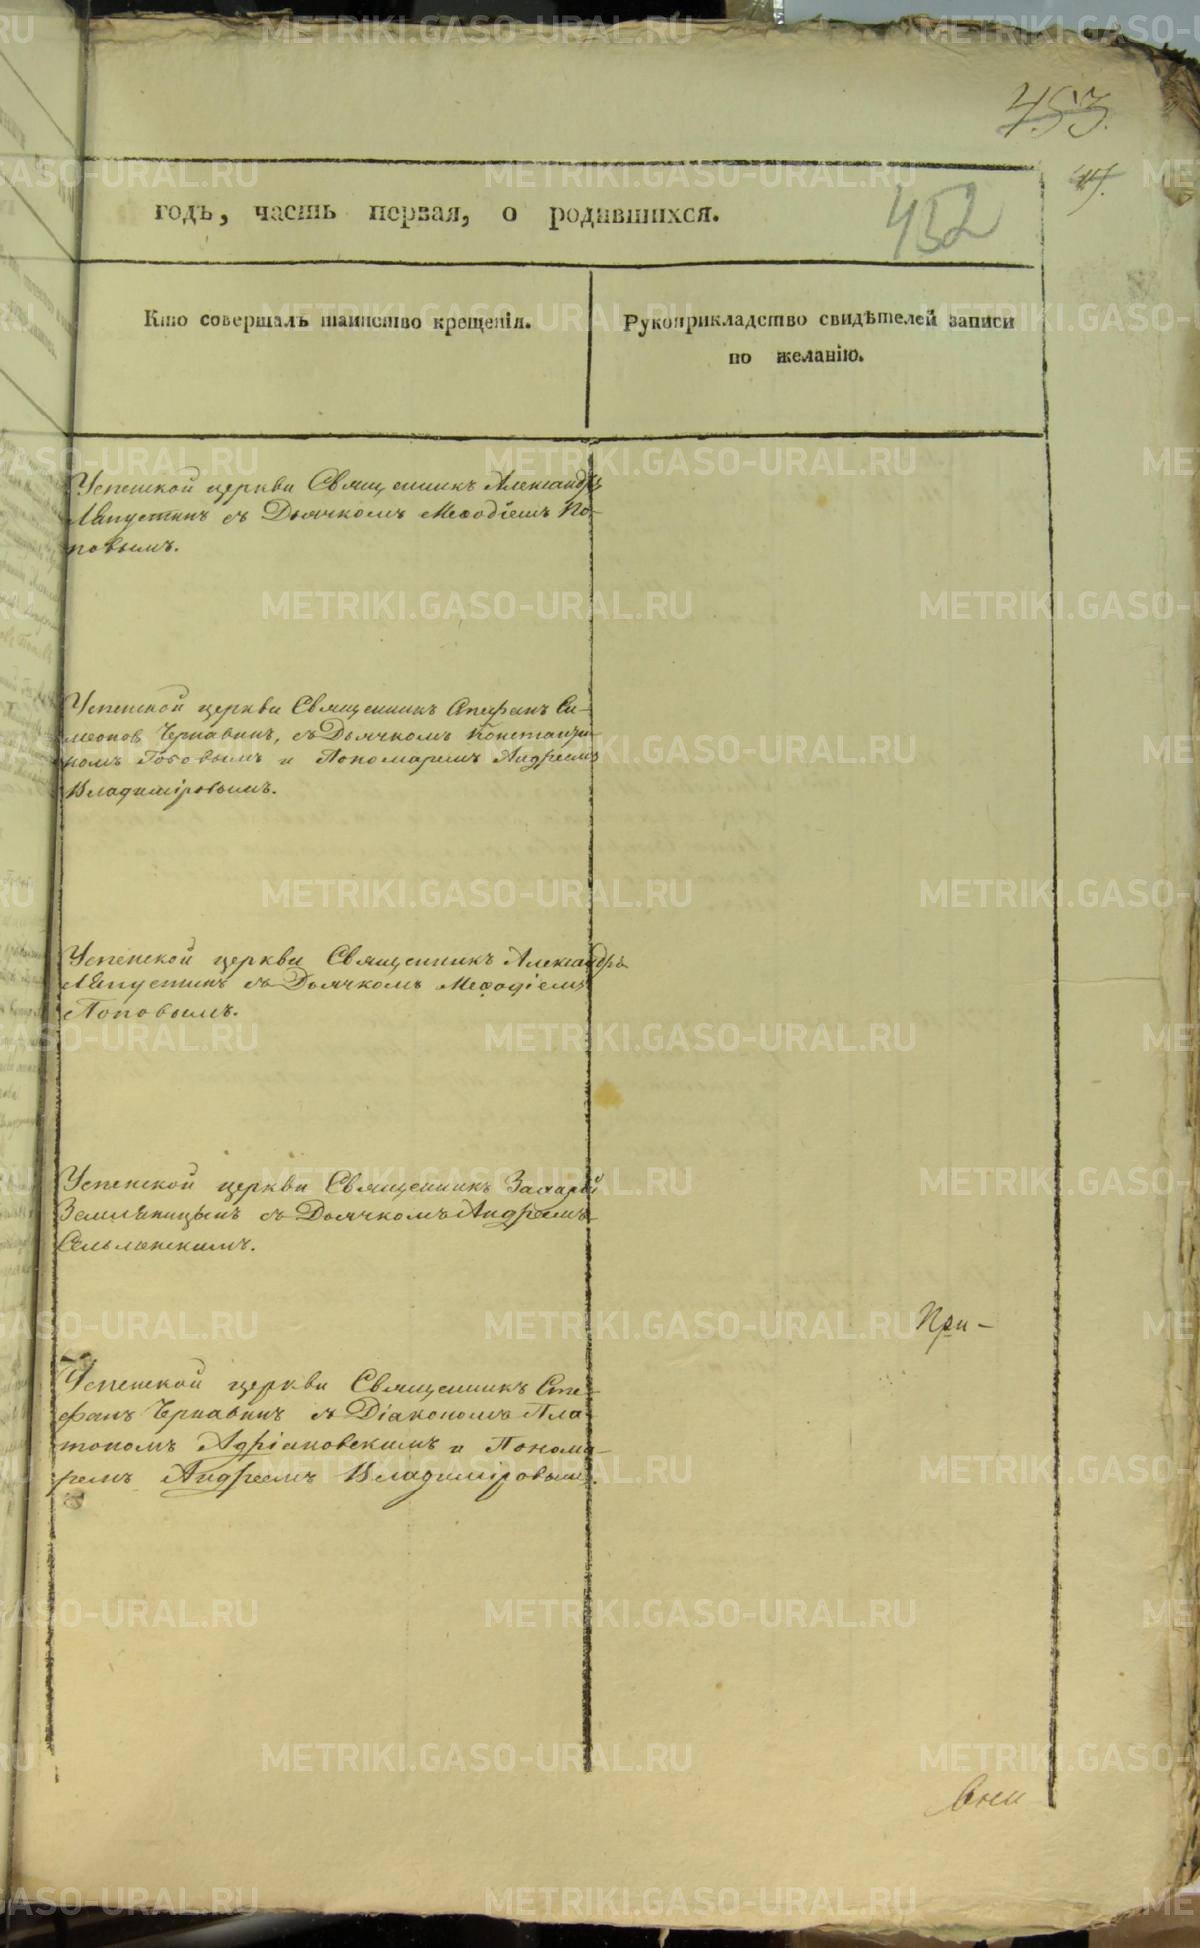 453.
годъ, часть первая, о родившихся.
452
Кто совершалъ таинство крещенія.
Рукоприкладство свидѣтелей записи
по желанію.
Успенской церкви Священникъ Александръ
Лапустинъ съ Дьячкомъ Меѳодіемъ По-
повымъ.
Успенской церкви Священникъ Стефанъ Си-
меоновъ Чернавинъ, съ Дьячкомъ Константи-
номъ и Пономаремъ Андреемъ
Владиміровымъ.
Успенской церкви Священникъ Александръ
Лапустинъ съ Дьячкомъ Меѳодіемъ
Поповымъ.
Успенской церкви Священникъ Захарій
Земляницынъ съ Дьячкомъ Андреемъ
Сельменскимъ.
При-
Успенской церкви Священникъ Сте-
фанъ Чернавинъ съ Діакономъ Пла-
тономъ Адріановскимъ и Понома-
ремъ Андреемъ Владиміровымъ.
METRIKI.GASO-URAL.RU